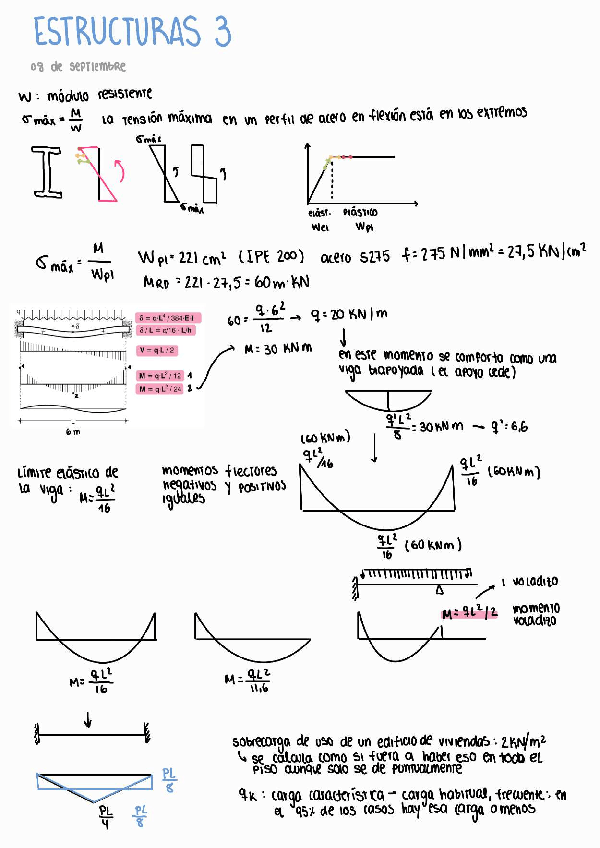 ESTRUCTURAS 3
08 de septiembre
W: módulo resistente
σ máx = M/W La tensión máxima en un perfil de acero en flexión está en los extremos
σ máx
σ máx
elást. plástico
Wel Wpl
σ máx = M/Wpl Wpl = 221 cm² (IPE 200) acero S275 f = 275 N/mm² = 27,5 KN/cm²
MRD = 221 · 27,5 = 60 m·KN
V = q·L / 2
M = q·L² / 12 1
M = q·L² / 24 2
6 m
60 = q·6²/12 → q = 20 KN/m
→ M = 30 KNm
en este momento se comporta como una
viga biapoyada (el apoyo cede)
q'L²/8 = 30 KNm → q' = 6,6
Límite elástico de
la viga: M = qL²/16
momentos flectores
negativos y positivos
iguales
(60 KNm)
qL²/16
qL²/16 (60 KNm)
qL²/16 (60 KNm)
1 voladizo
M = qL²/2 momento
voladizo
M = qL²/16
M = qL²/11,6
PL/8
PL/4 PL/8
sobrecarga de uso de un edificio de viviendas: 2 KN/m²
↳ se calcula como si fuera a haber eso en todo el
piso aunque solo se de puntualmente
qk: carga característica → carga habitual, frecuente: en
el 95% de los casos hay esa carga o menos